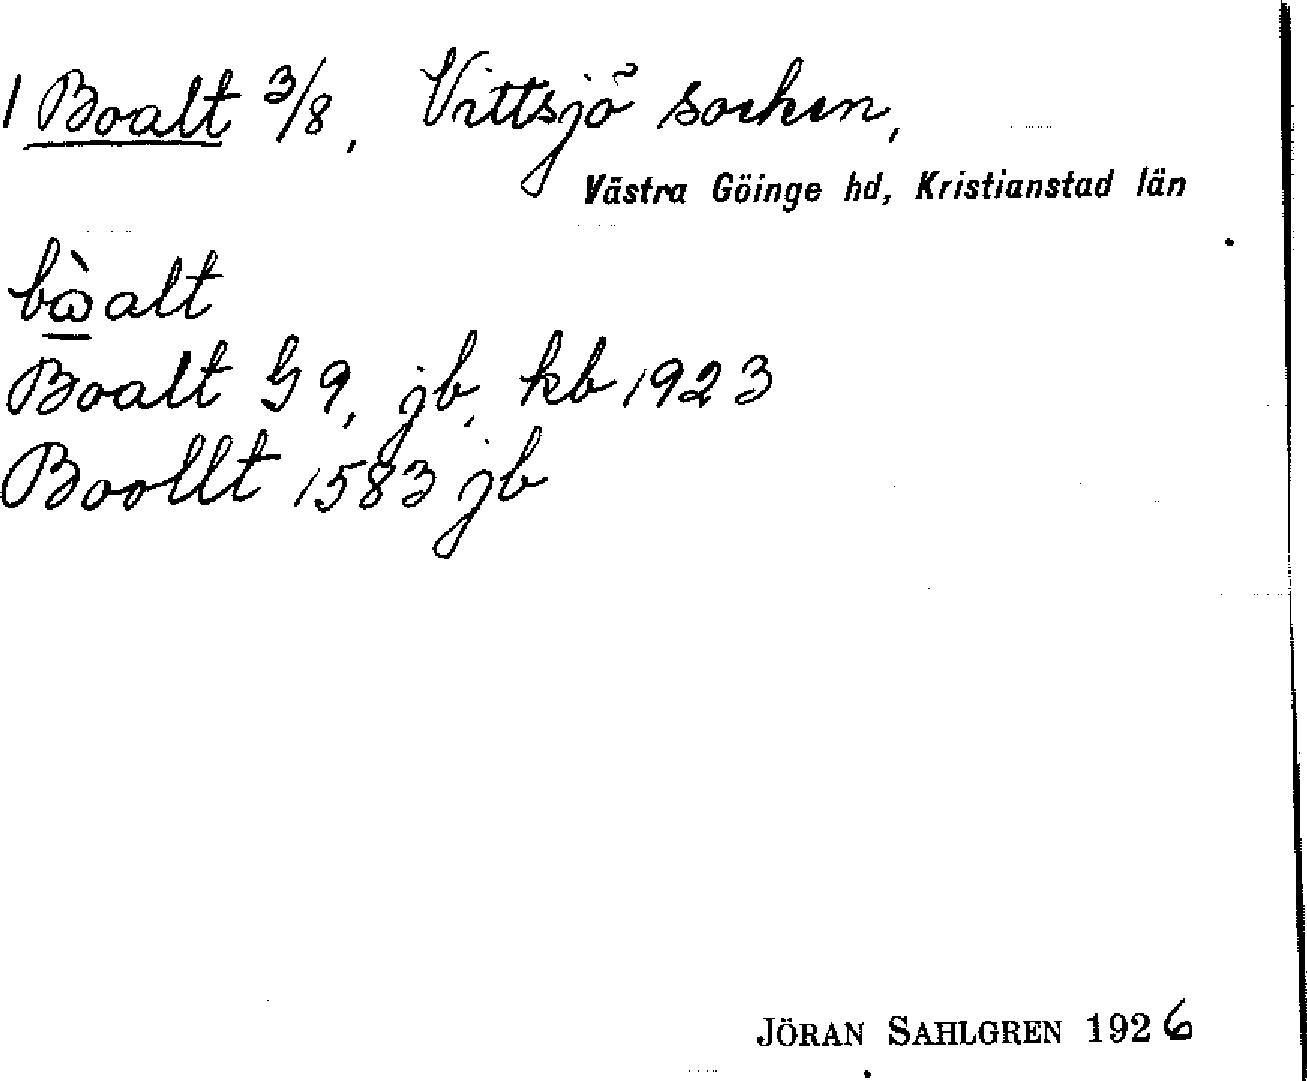 1 Boalt 3/8, Vittsjö socken,
Västra Göinge hd, Kristianstad län
bὼalt
Boalt G 9, jb, kb 1923
Boollt 1583 jb
JÖRAN SAHLGREN 1926